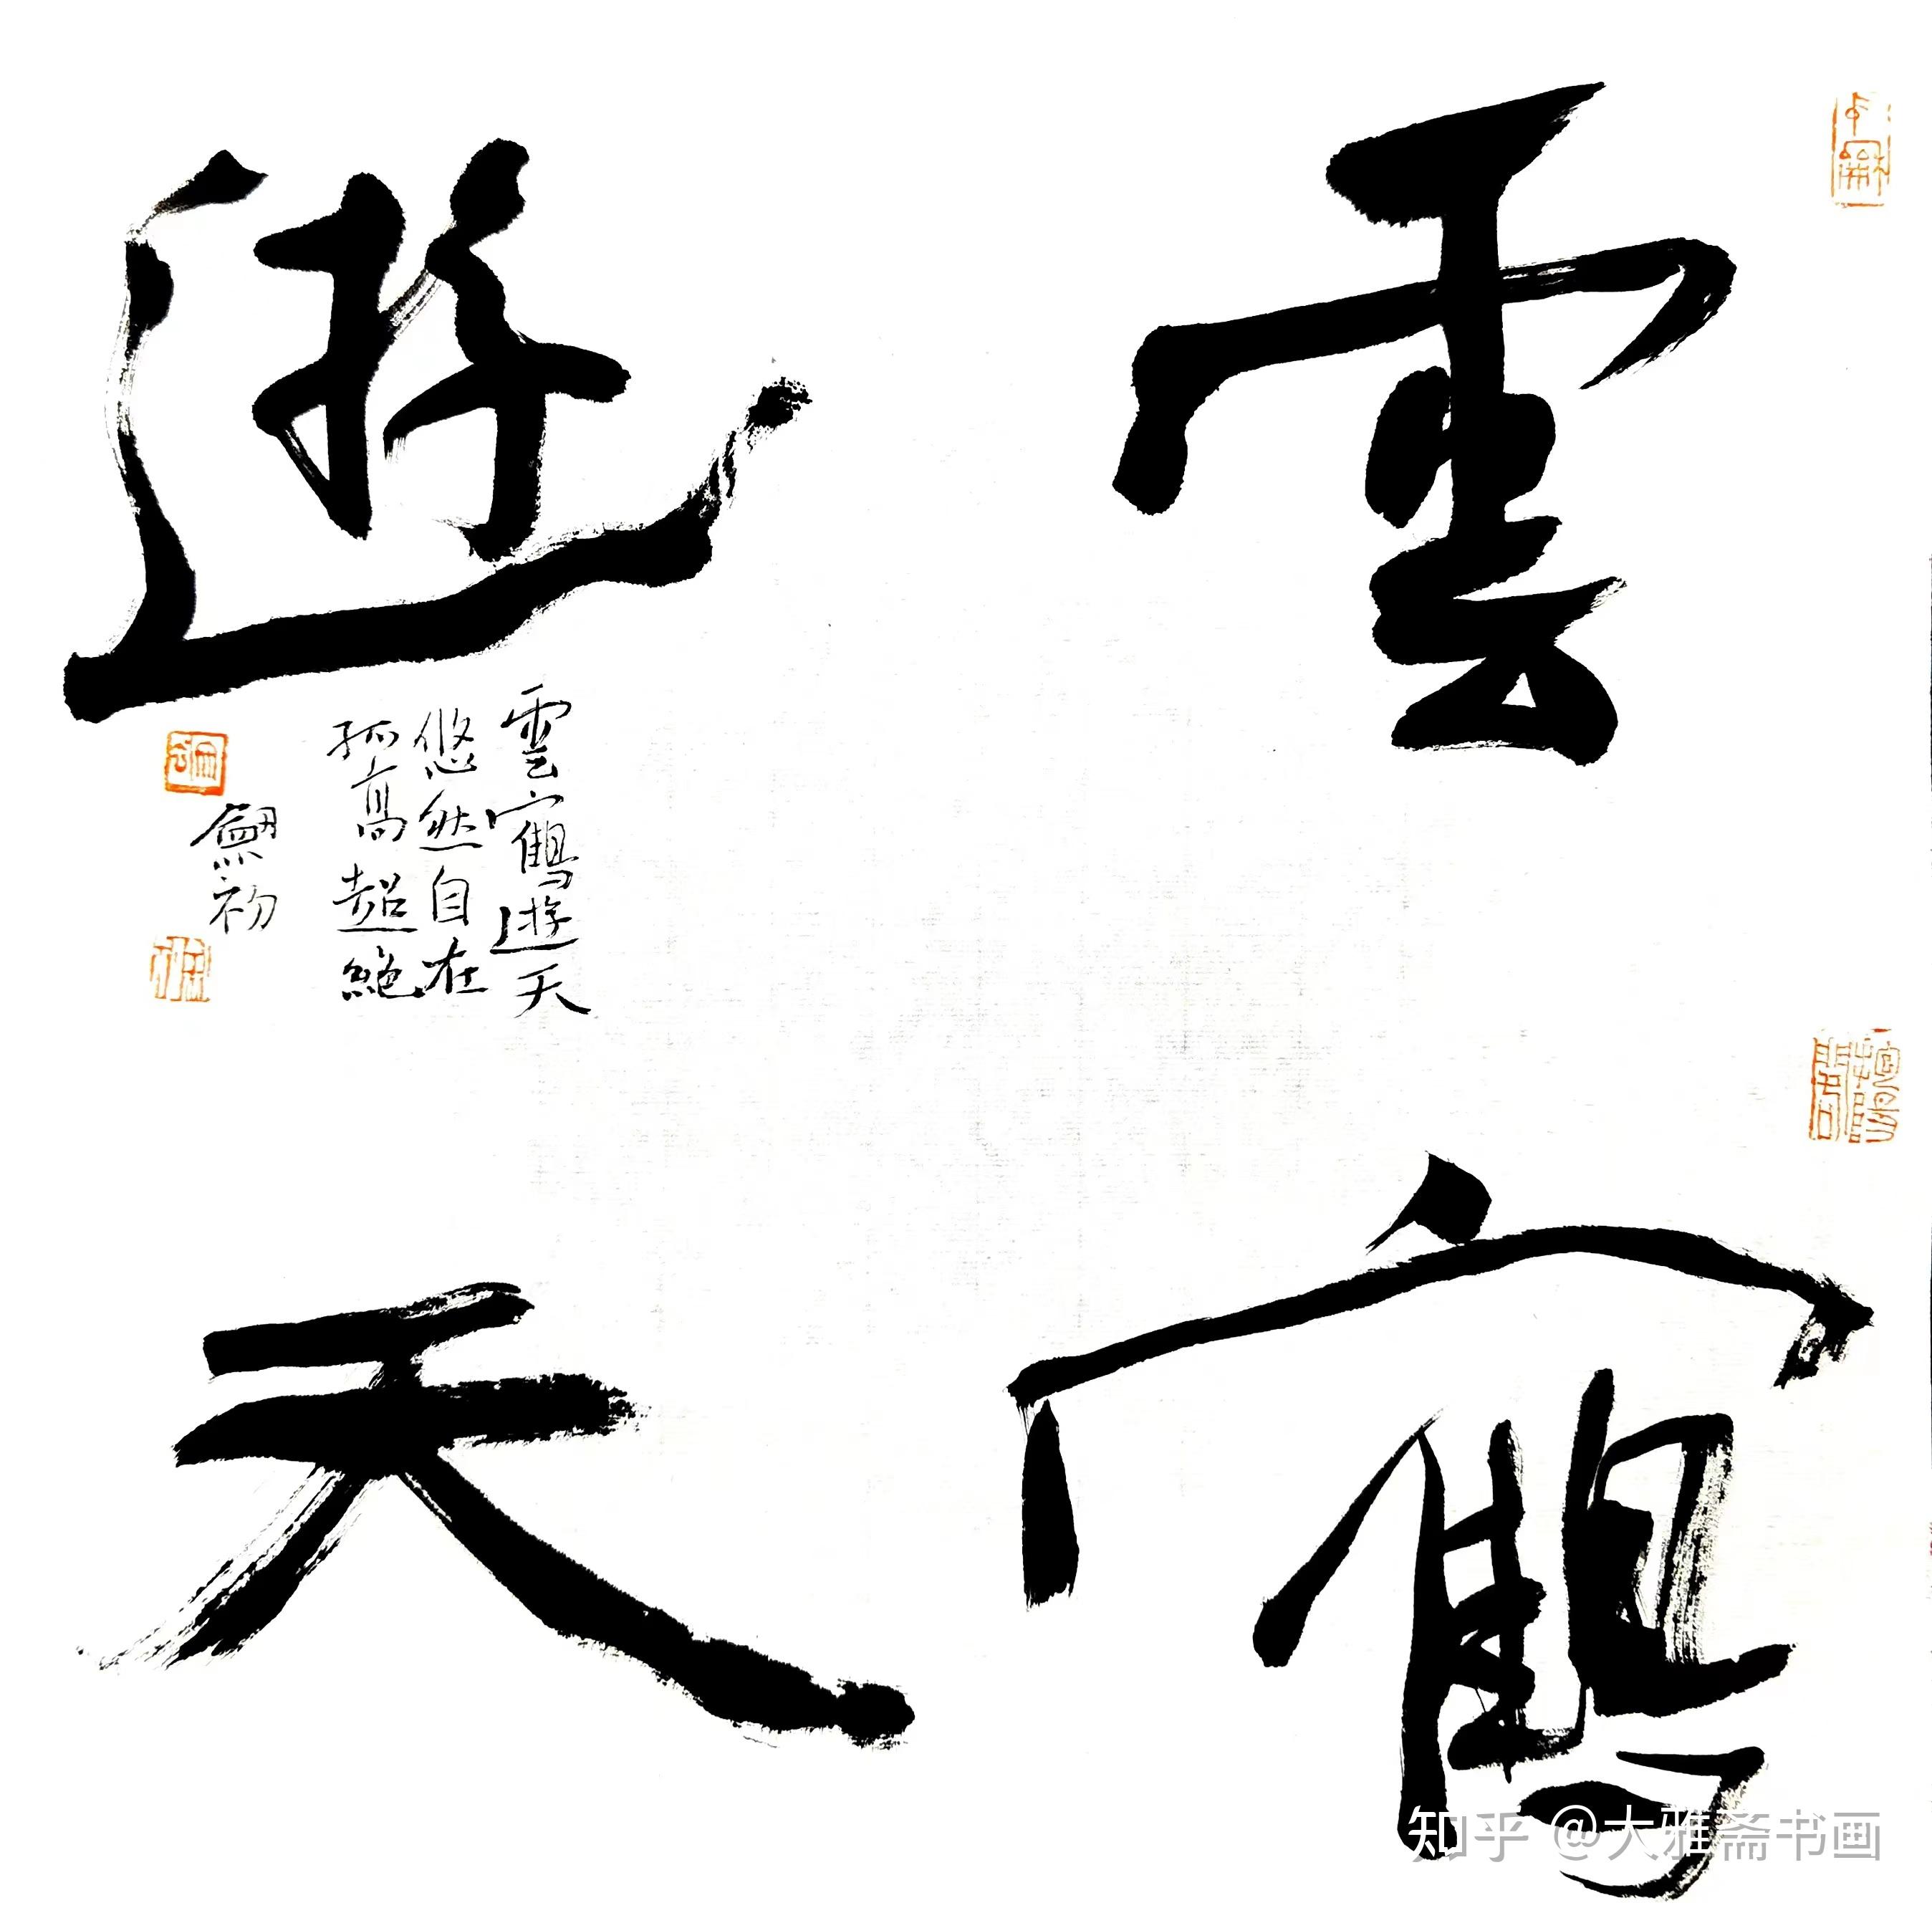 雲鶴
遊天
雲鶴遊天
悠然自在
孤高超絶
劔初
知乎 @大雅斋书画